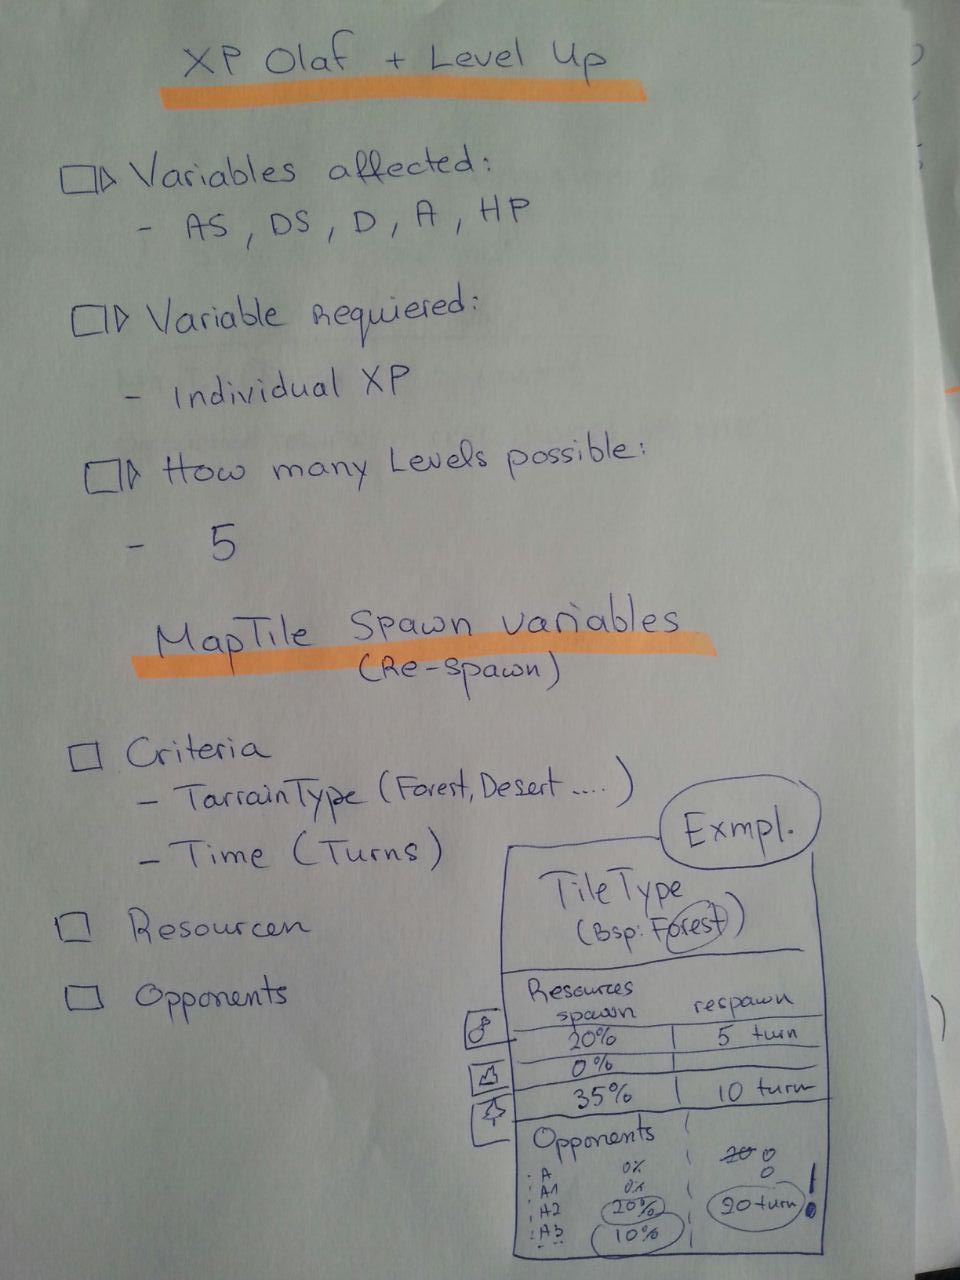 XP Olaf + Level Up
Variables affected:
- AS, DS, D, A, HP
Variable Requiered:
- Individual XP
How many Levels possible:
- 5
MapTile Spawn variables
(Re-spawn)
Criteria
- TarrainType (Forest, Desert ....)
- Time (Turns)
Resourcen
Opponents
Exmpl.
TileType
(Bsp: Forest)
Resources spawn respawn
20% 5 turn
0%
35% 10 turn
Opponents
A 0% 0
A1 0% 0
A2 20% 20 turn !
A3 10%